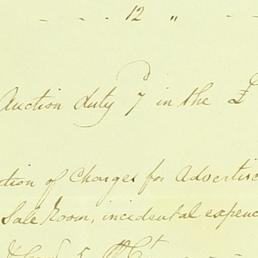 - - - 12 „ - -
Auction duty 7 in the £
tion of Charges for Advertis
Sale Room, incidental expenc